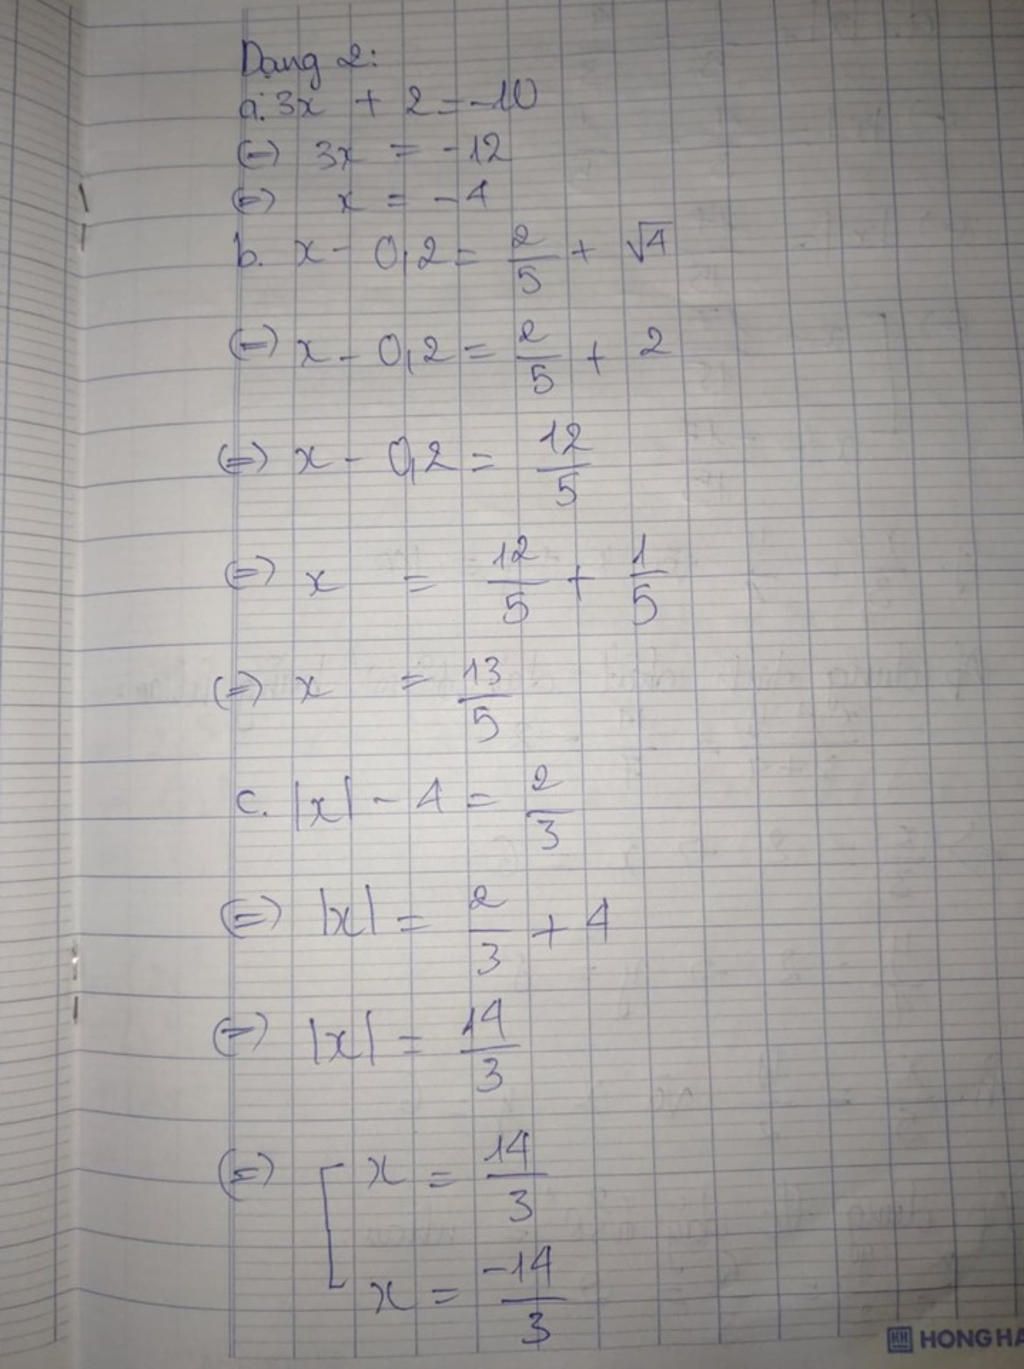 Dạng 2:
a. 3x + 2 = -10
(=) 3x = -12
(=) x = -4
b. x - 0,2 = 2/5 + √4
(=) x - 0,2 = 2/5 + 2
(=) x - 0,2 = 12/5
(=) x = 12/5 + 1/5
(=) x = 13/5
c. |x| - 4 = 2/3
(=) |x| = 2/3 + 4
(=) |x| = 14/3
(=) [ x = 14/3
x = -14/3
HONG HA